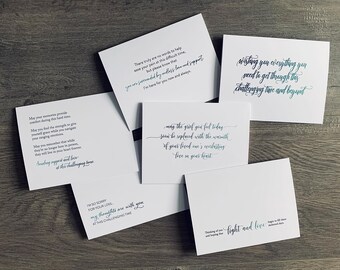 There truly are no words to help
ease your pain at this difficult time,
but please know that
you are surrounded by endless love and support.
I'm here for you now and always.
wishing you everything you
need to get through this
challenging time and beyond
May your memories provide
comfort during this hard time.
May you find the strength to give
yourself grace while you navigate
your ongoing emotions.
May you remember that while
Sending support and love
at this challenging time
may the grief you feel today
soon be replaced with the warmth
of your loved one's everlasting
love in your heart
I'M SO SORRY
FOR YOUR LOSS.
my thoughts are with you
AT THIS CHALLENGING TIME
Thinking of you
and hoping that
light and love